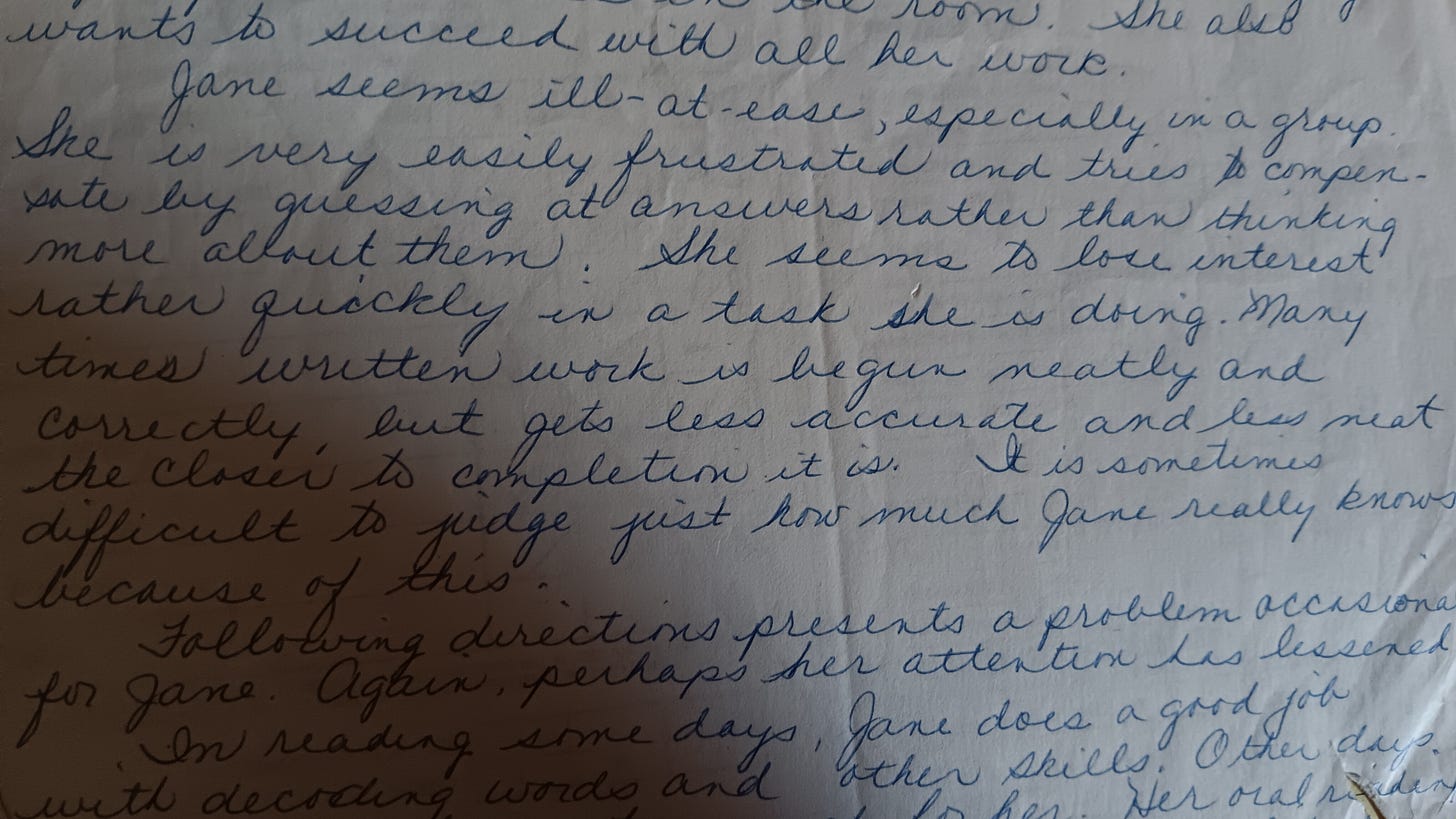 in the room. She also
wants to succeed with all her work.
Jane seems ill-at-ease, especially in a group.
She is very easily frustrated and tries to compen-
sate by guessing at answers rather than thinking
more about them. She seems to lose interest
rather quickly in a task she is doing. Many
times written work is begun neatly and
correctly, but gets less accurate and less neat
the closer to completion it is. It is sometimes
difficult to judge just how much Jane really knows
because of this.
Following directions presents a problem occasiona
for Jane. Again, perhaps her attention has lessened
In reading some days, Jane does a good job
with decoding words and other skills. Other days.
for her. Her oral reading